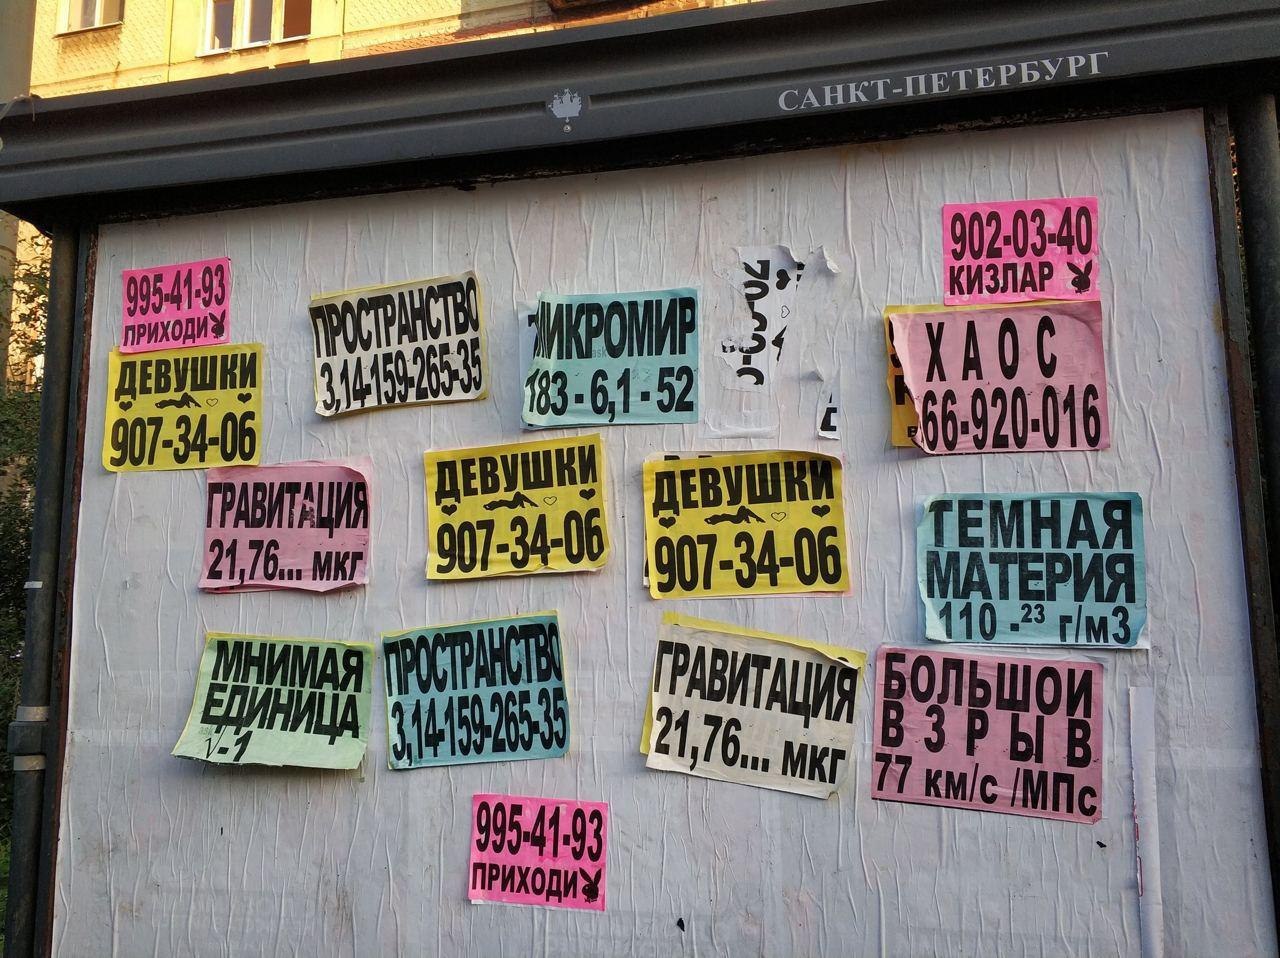 САНКТ-ПЕТЕРБУРГ
995-41-93
ПРИХОДИ
ДЕВУШКИ
907-34-06
ПРОСТРАНСТВО
3,14-159-265-35
МИКРОМИР
183 - 6,1 - 52
902-03-40
КИЗЛАР
ХАОС
66-920-016
ГРАВИТАЦИЯ
21,76... мкг
ДЕВУШКИ
907-34-06
ДЕВУШКИ
907-34-06
ТЕМНАЯ
МАТЕРИЯ
110 -23 г/м3
МНИМАЯ
ЕДИНИЦА
√-1
ПРОСТРАНСТВО
3,14-159-265-35
ГРАВИТАЦИЯ
21,76... мкг
БОЛЬШОИ
ВЗРЫВ
77 км/с /МПс
995-41-93
ПРИХОДИ